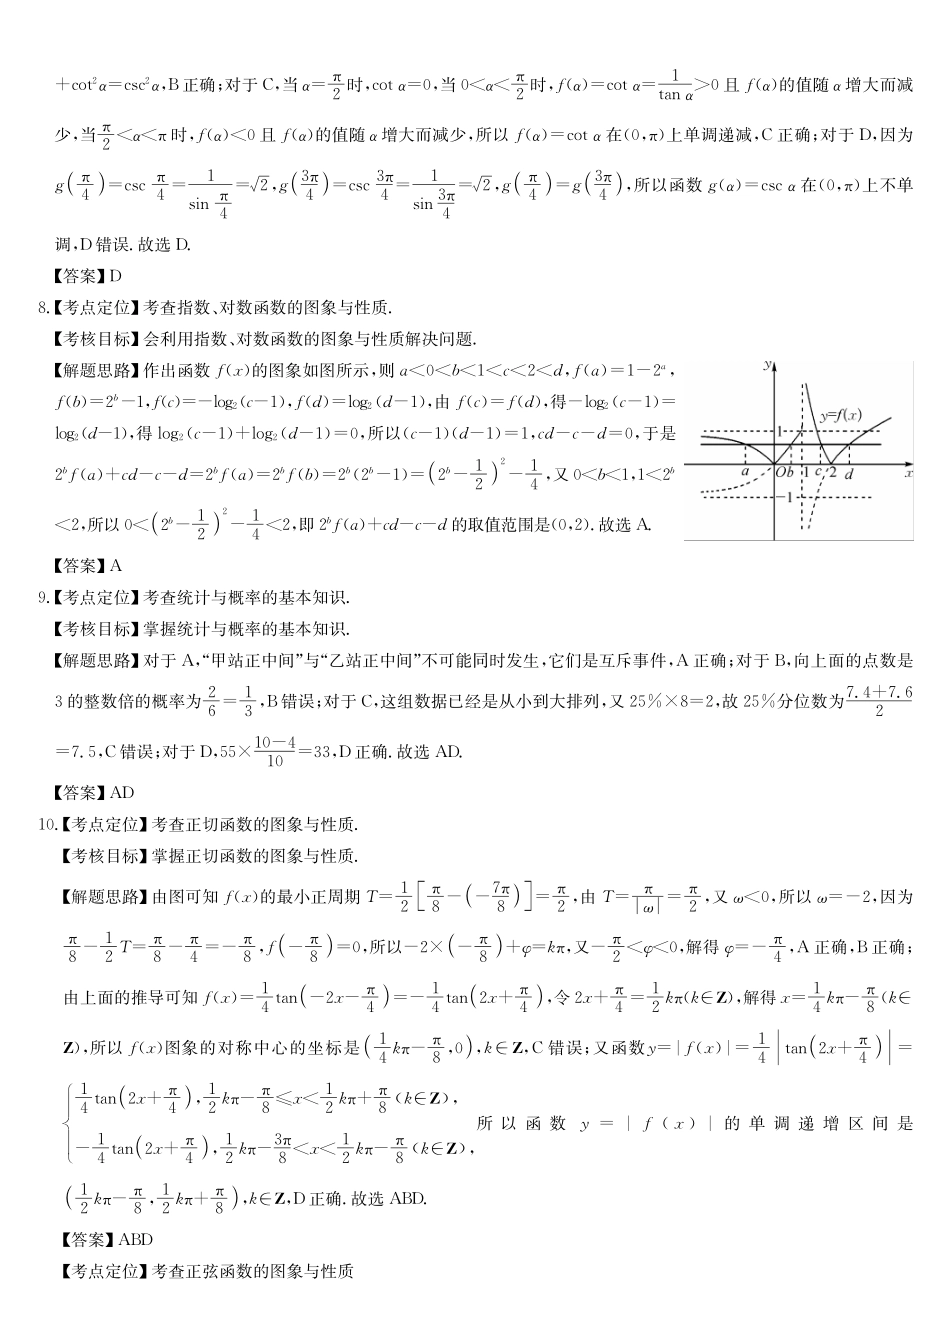 +cot²α=csc²α,B正确;对于C,当α=π/2时,cot α=0,当0<α<π/2时,f(α)=cot α=1/tan α>0且f(α)的值随α增大而减
少,当π/2<α<π时,f(α)<0且f(α)的值随α增大而减少,所以f(α)=cot α在(0,π)上单调递减,C正确;对于D,因为
g(π/4)=csc π/4=1/(sin π/4)=√2,g(3π/4)=csc 3π/4=1/(sin 3π/4)=√2,g(π/4)=g(3π/4),所以函数g(α)=csc α在(0,π)上不单
调,D错误.故选D.
【答案】D
8.【考点定位】考查指数、对数函数的图象与性质.
【考核目标】会利用指数、对数函数的图象与性质解决问题.
【解题思路】作出函数f(x)的图象如图所示,则a<0<b<1<c<2<d,f(a)=1-2ᵃ,
f(b)=2ᵇ-1,f(c)=-log₂(c-1),f(d)=log₂(d-1),由f(c)=f(d),得-log₂(c-1)=
log₂(d-1),得log₂(c-1)+log₂(d-1)=0,所以(c-1)(d-1)=1,cd-c-d=0,于是
2ᵇf(a)+cd-c-d=2ᵇf(a)=2ᵇf(b)=2ᵇ(2ᵇ-1)=(2ᵇ-1/2)²-1/4,又0<b<1,1<2ᵇ
<2,所以0<(2ᵇ-1/2)²-1/4<2,即2ᵇf(a)+cd-c-d的取值范围是(0,2).故选A.
y
y=f(x)
1
a O b 1 c 2 d x
-1
【答案】A
9.【考点定位】考查统计与概率的基本知识.
【考核目标】掌握统计与概率的基本知识.
【解题思路】对于A,“甲站正中间”与“乙站正中间”不可能同时发生,它们是互斥事件,A正确;对于B,向上面的点数是
3的整数倍的概率为2/6=1/3,B错误;对于C,这组数据已经是从小到大排列,又25%×8=2,故25%分位数为(7.4+7.6)/2
=7.5,C错误;对于D,55×(10-4)/10=33,D正确.故选AD.
【答案】AD
10.【考点定位】考查正切函数的图象与性质.
【考核目标】掌握正切函数的图象与性质.
【解题思路】由图可知f(x)的最小正周期T=1/2[π/8-(-7π/8)]=π/2,由T=π/|ω|=π/2,又ω<0,所以ω=-2,因为
π/8-1/2T=π/8-π/4=-π/8,f(-π/8)=0,所以-2×(-π/8)+φ=kπ,又-π/2<φ<0,解得φ=-π/4,A正确,B正确;
由上面的推导可知f(x)=1/4tan(-2x-π/4)=-1/4tan(2x+π/4),令2x+π/4=1/2kπ(k∈Z),解得x=1/4kπ-π/8(k∈
Z),所以f(x)图象的对称中心的坐标是(1/4kπ-π/8,0),k∈Z,C错误;又函数y=|f(x)|=1/4|tan(2x+π/4)|=
{1/4tan(2x+π/4),1/2kπ-π/8≤x<1/2kπ+π/8(k∈Z),
-1/4tan(2x+π/4),1/2kπ-3π/8<x<1/2kπ-π/8(k∈Z), 所以函数y=|f(x)|的单调递增区间是
(1/2kπ-π/8,1/2kπ+π/8),k∈Z,D正确.故选ABD.
【答案】ABD
【考点定位】考查正弦函数的图象与性质